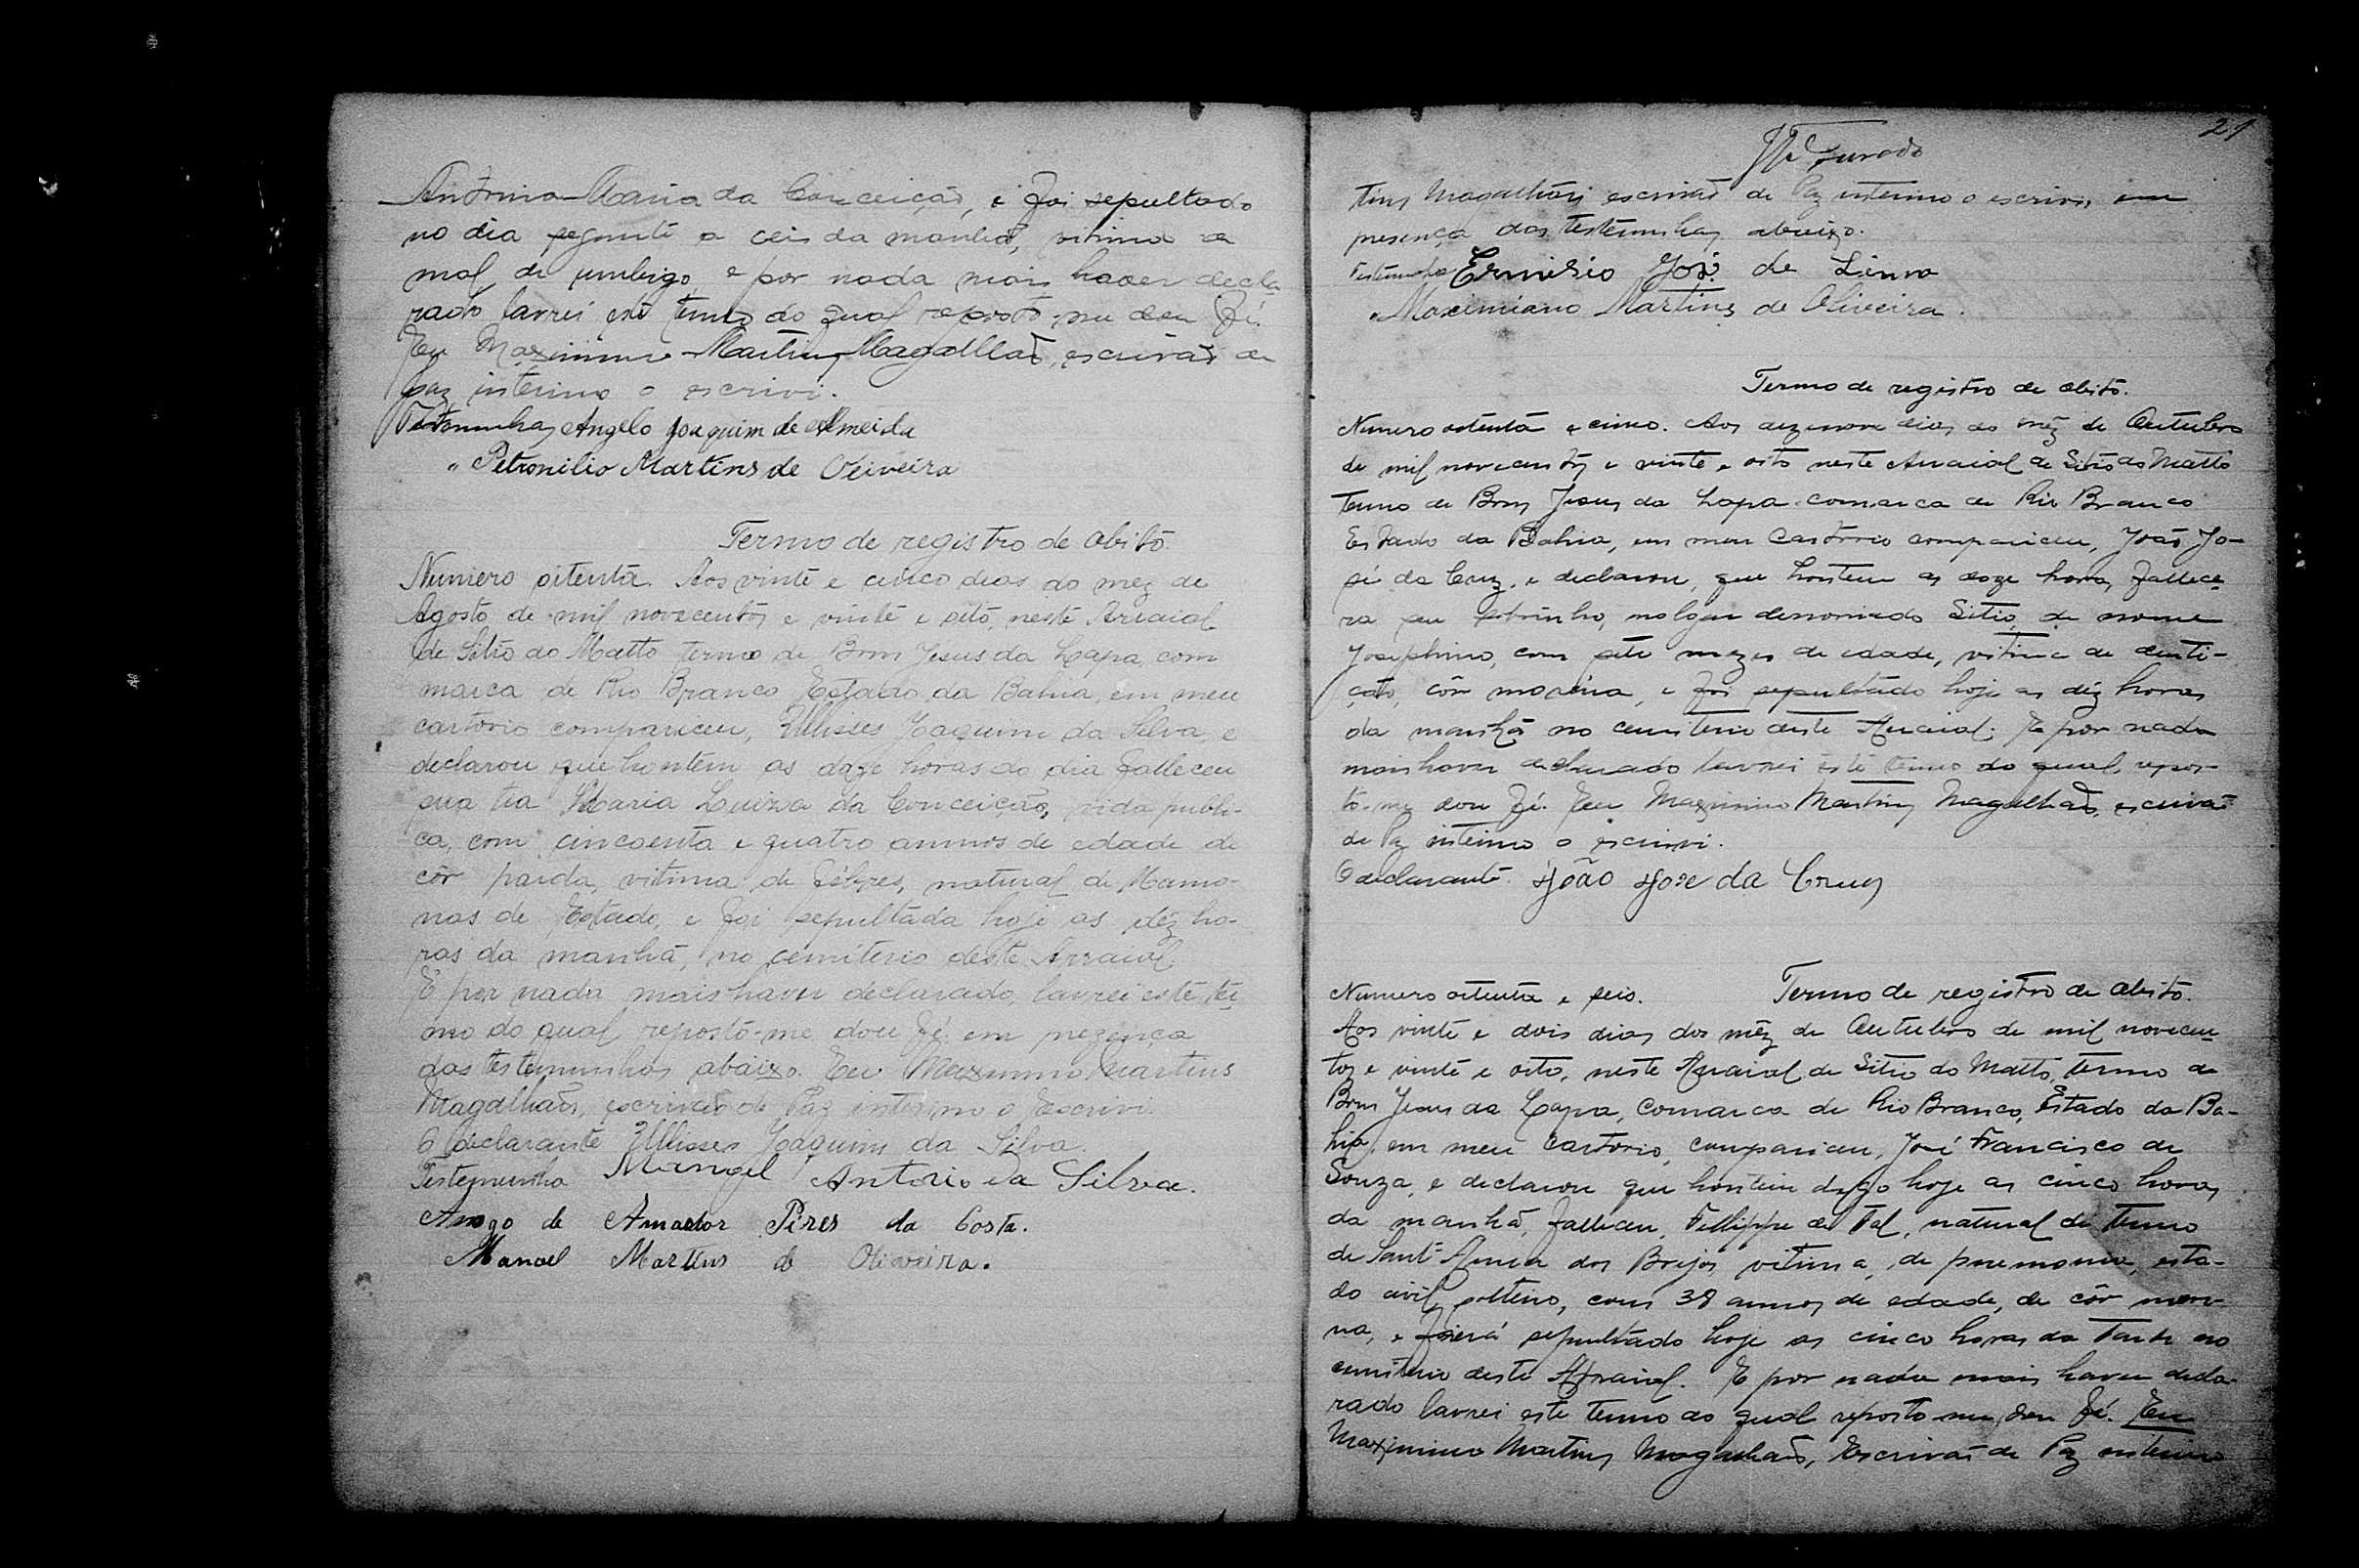 Antonina Maria da Conceição, e foi sepultado
no dia seguinte a ceis da manhã, vitima de
mal de umbigo, e por nada mais haver decla
rado lavrei este termo do qual reposto-me dou fé.
Eu Maximino Martins Magalhãs, escrivão de
paz interino o escrivi.
Testemunhas Angelo Joaquim de Almeida
" Petronilio Martins de Oliveira
Termo de registro de obito.
Numero oitenta. Aos vinte e cinco dias do mez de
Agosto de mil novecentos e vinte e oito, neste Arraial
de Sitio do Matto termo de Bom Jesus da Lapa, com
marca de Rio Branco Estado da Bahia, em meu
cartorio compareceu, Ullisses Joaquim da Silva, e
declarou que hontem as doze horas do dia falleceu
sua tia Maria Luiza da Conceição, vida publi-
ca, com cincoenta e quatro annos de edade de
côr parda, vitima de febres, natural de Mamo-
nas de Estado, e foi sepultada hoje as déz ho-
ras da manhã, no cemiterio deste Arraial.
E por nada mais haver declarado, lavrei este ter
mo do qual reposto-me dou fé em prezença
das testemunhas abaixo. Eu Maximino Martins
Magalhãs, escrivão de Paz interino o Escrivi
O declarante Ullisses Joaquim da Silva.
Testemunha Manoel Antonio da Silva.
Arogo de Amador Pires da Costa.
Manoel Martins de Oliveira.
21
Furado
tins Magalhãs escrivão de Paz interino o escrivi, em
presença das testemunhas abaixo.
Testemunha Ermirio José de Lima
" Maximiano Martins de Oliveira.
Termo de registro de obito.
Numero oitenta e cinco. Aos dezenove dias do mêz de Outubro
de mil novecentos e vinte e oito neste Arraial de Sitio do Matto
termo de Bom Jesus da Lapa comarca de Rio Branco
Estado da Bahia, em meu Cartorio compareceu, João Jo-
sé da Cruz, e declarou, que hontem as doze horas, fallece
ra seu sobrinho, no logar denominado Sitio, de nome
Josephino, com sete mezes de edade, vitima de denti-
ção, côr morena, e foi sepultado hoje as déz horas
da manhã no cemiterio deste Arraial. E por nada
mais haver declarado lavrei este termo do qual repos-
to-me dou fé. Eu Maximino Martins Magalhãs, escrivão
de Paz interino o escrivi.
O declarante João José da Cruz
Numero oitenta e seis. Termo de registro de obito.
Aos vinte e dois dias dos mêz de Outubro de mil novecen
tos e vinte e oito, neste Arraial de Sitio do Matto, termo de
Bom Jesus da Lapa, Comarca de Rio Branco, Estado da Ba-
hia, em meu Cartorio, compareceu, José Francisco de
Souza, e declarou que hontem digo hoje as cinco horas
da manhã, falleceu, Fellippe de Tal, natural do termo
de Sant'Anna dos Brejos, vitima, de pneumonia, esta-
do civil solteiro, com 38 annos de edade, de côr more-
na, e será sepultado hoje as cinco horas da tarde no
cemiterio deste Arraial. E por nada mais haver decla-
rado lavrei este termo do qual reposto-me, dou fé. Eu
Maximino Martins Magalhãs, Escrivão de Paz interino